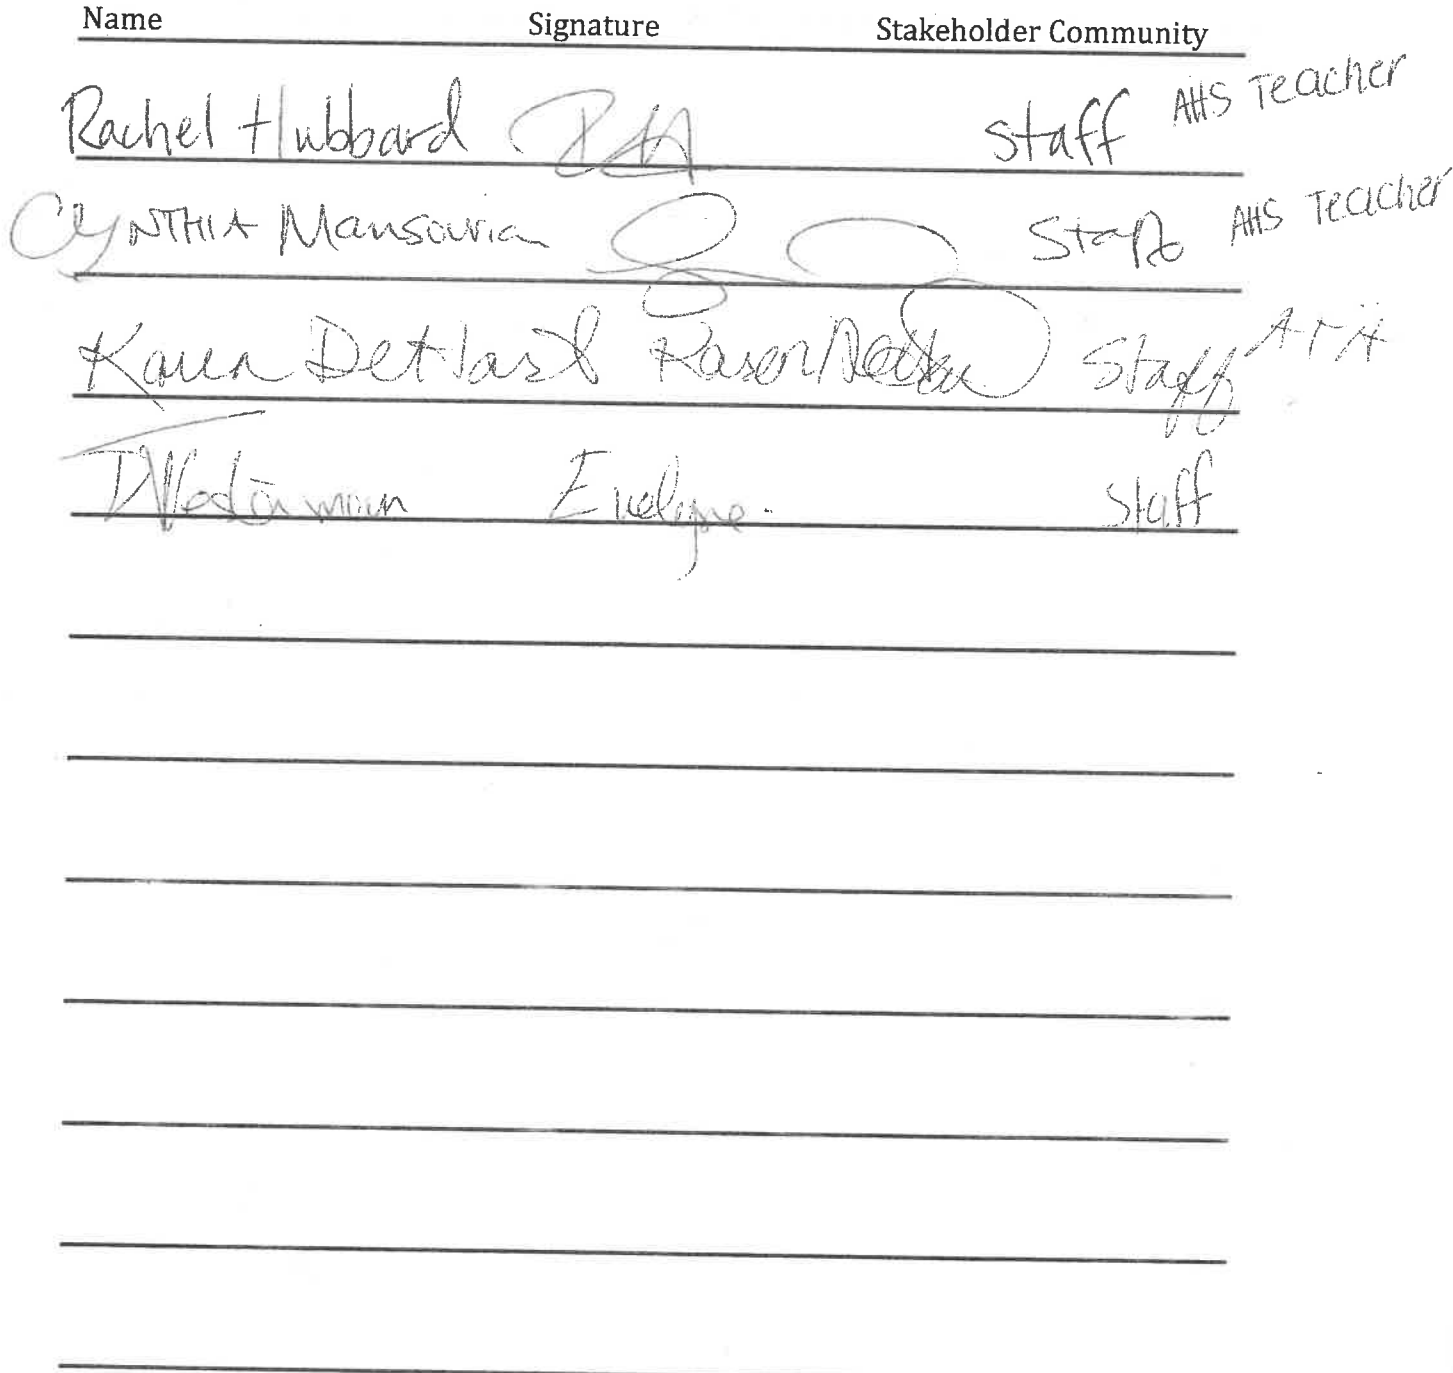 Name Signature Stakeholder Community
Rachel Hubbard RH Staff AHS Teacher
CYNTHIA Mansourian Staff AHS Teacher
Karen Detlast Karen Staff
Evelyne. Staff